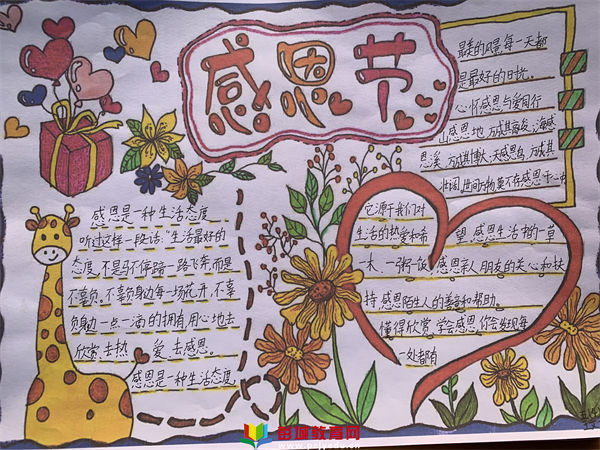 感恩节
最美的风景每一天都
是最好的日子。
心怀感恩与爱同行
山感恩地,方成其高峻;海感
恩溪,方成其博大;天感恩鸟,方成其
壮阔,世间万物莫不存感恩于心中
感恩是一种生活态度
听过这样一段话:"生活最好的
态度,不是马不停蹄一路飞奔,而是
不辜负,不辜负身边每一场花开,不辜
负身边一点一滴的拥有,用心地去
欣赏,去热爱,去感恩。
感恩是一种生活态度,
它源于我们对
生活的热爱和希望,感恩生活中的一草
一木、一粥一饭,感恩亲人朋友的关心和扶
持,感恩陌生人的善意和帮助。
懂得欣赏,学会感恩,你会发现每
一处都有
彭城教育网